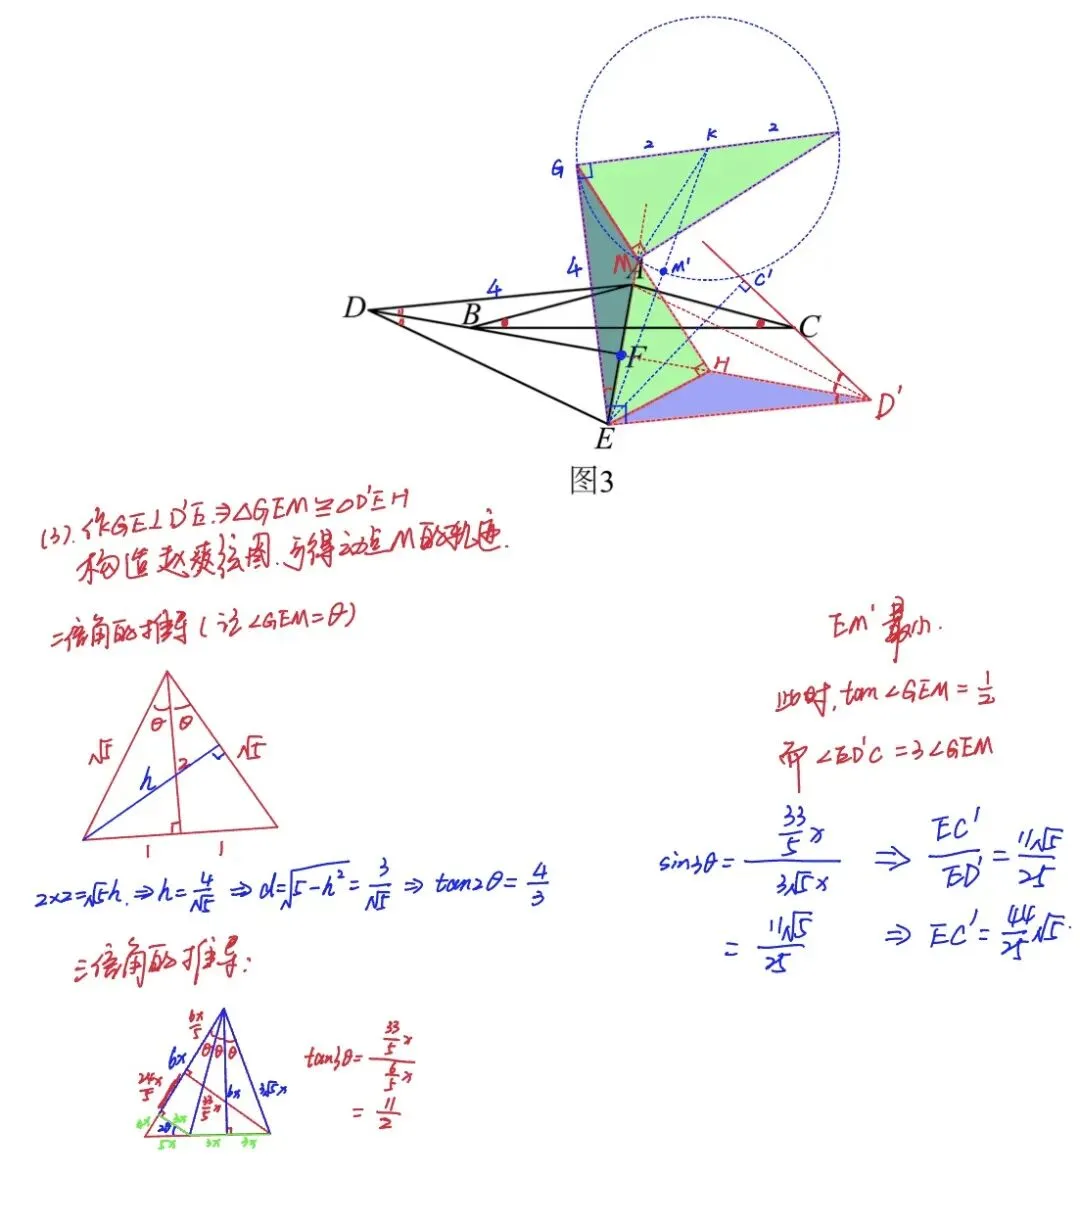 2
K
2
G
4
M
M'
A
C'
D
4
B
C
F
H
D'
E
图3
(3). 作GE⊥D'E.⇒△GEM≌△D'EH
构造赵爽弦图.可得动点M的轨迹.
二倍角的推导(记∠GEM=θ)
θ θ
√5
√5
h
2
1 1
2×2=√5h. ⇒ h=4/√5 ⇒ d=√(5-h²)=3/√5 ⇒ tan2θ=4/3
三倍角的推导:
6x/5
6x
θ θ θ
24x/5
33/5 x
6x
3√5x
4x
3x
2θ
5x
3x
3x
tan3θ= (33/5 x)/(6/5 x)
= 11/2
EM'最小.
此时, tan∠GEM=1/2
而∠ED'C=3∠GEM
sin3θ= (33/5 x)/(3√5x) ⇒ EC'/ED' = 11√5/25
= 11√5/25 ⇒ EC'=44/25 √5.